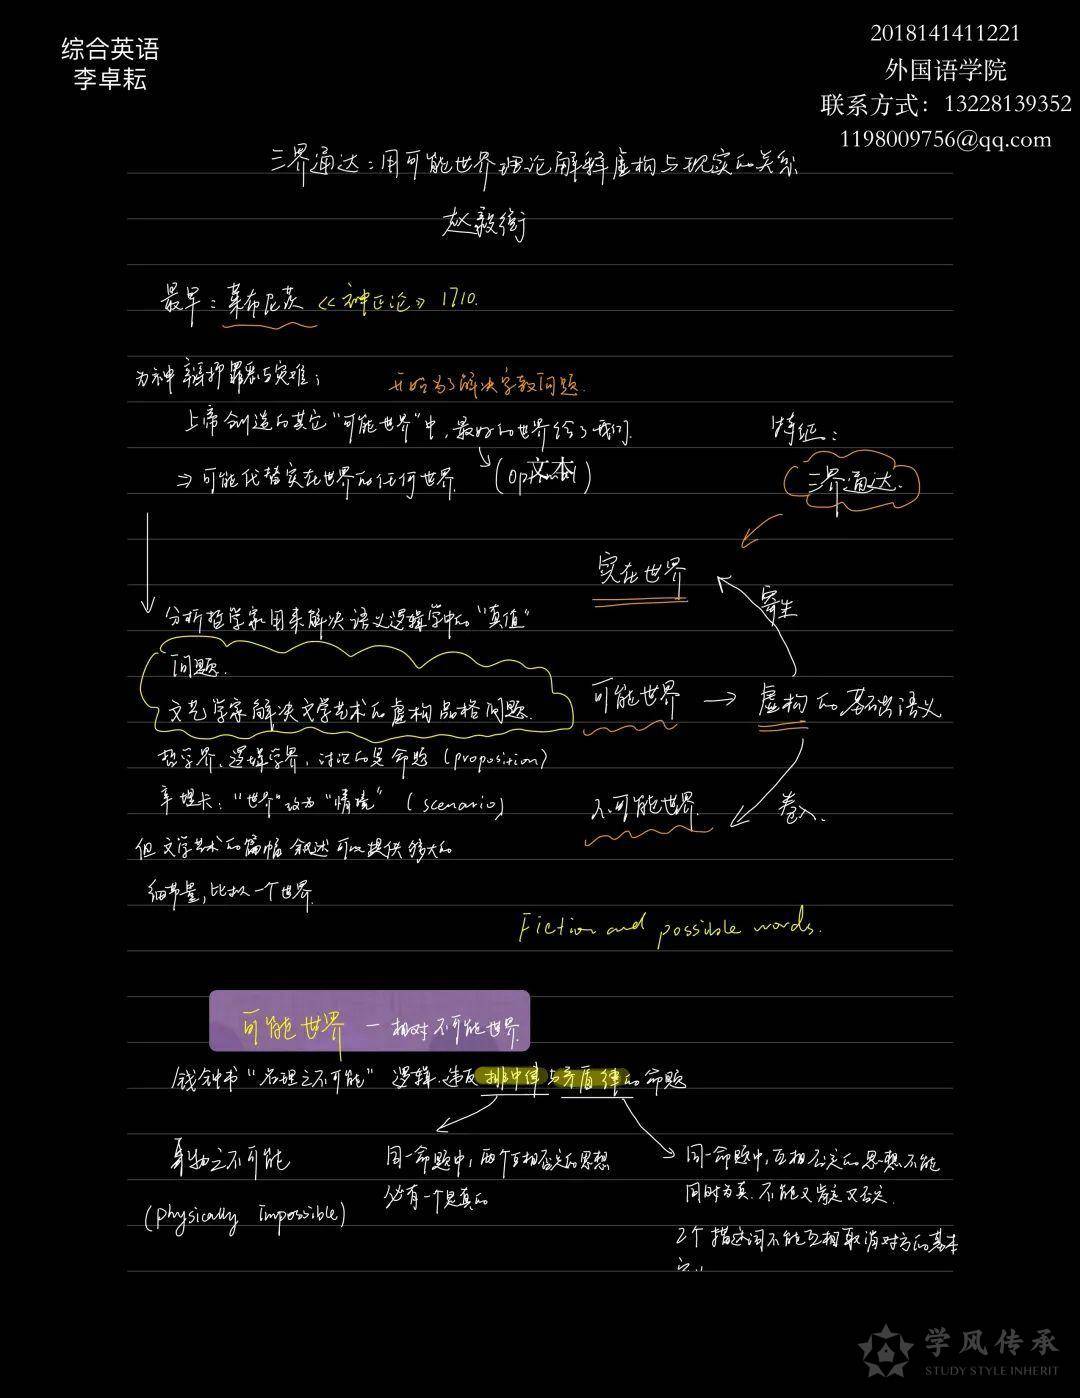 综合英语
李卓耘
2018141411221
外国语学院
联系方式：13228139352
1198009756@qq.com
三界通达：用可能世界理论解释虚构与现实的关系
赵毅衡
最早：莱布尼茨《神正论》1710.
为神辩护罪恶与灾难；
开始为了解决宗教问题.
上帝创造的其它“可能世界”中，最好的世界给了我们.
⇒可能代替实在世界的任何世界.
文本
特征：
三界通达.
实在世界
寄生
分析哲学家用来解决语义逻辑学中的“真值”
问题.
文艺学家解决文学艺术的虚构品格问题.
可能世界 → 虚构的基础语义
哲学界、逻辑学界，讨论的是命题（proposition）
辛提卡：“世界”改为“情境”（scenario）
不可能世界.
卷入.
但文学艺术的篇幅叙述可以提供够大的
细节量，比拟一个世界.
Fiction and possible words.
可能世界 — 相对不可能世界.
钱钟书“名理之不可能” 逻辑.违反排中律与矛盾律的命题
事物之不可能
(physically Impossible)
同一命题中，两个互相否定的思想
必有一个是真的
同一命题中，互相否定的思想不能
同时为真.不能又肯定又否定.
2个描述词不能互相取消对方的基本
学风传承
STUDY STYLE INHERIT